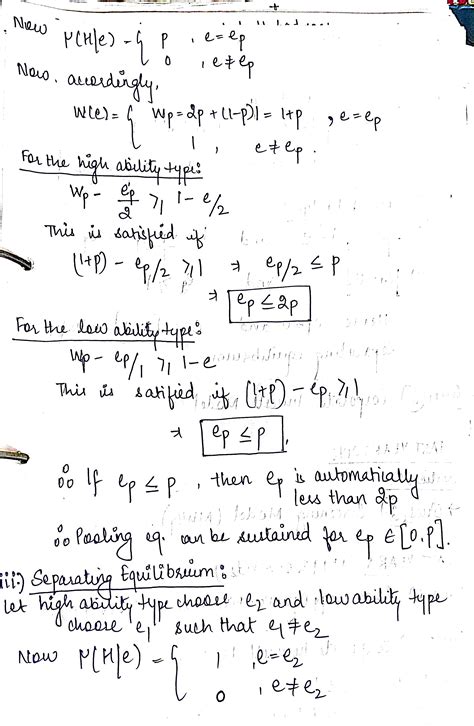 Now μ(H|e) = { p , e = ep
0 , e ≠ ep
Now, accordingly,
W(e) = { Wp = 2p + (1-p)1 = 1+p , e = ep
1 , e ≠ ep.
For the high ability type:
Wp - ep/2 ≥ 1 - e/2
This is satisfied if
(1+p) - ep/2 ≥ 1 ⇒ ep/2 ≤ p
⇒ ep ≤ 2p
For the low ability type:
Wp - ep/1 ≥ 1 - e
This is satified if (1+p) - ep ≥ 1
⇒ ep ≤ p.
∴ If ep ≤ p , then ep is automatially
less than 2p
∴ Pooling eq. can be sustained for ep ∈ [0,p].
iii.) Separating Equilibrium:
Let high ability type choose e2 and low ability type
choose e1 such that e1 ≠ e2
Now μ(H|e) = { 1 , e = e2
0 , e ≠ e2